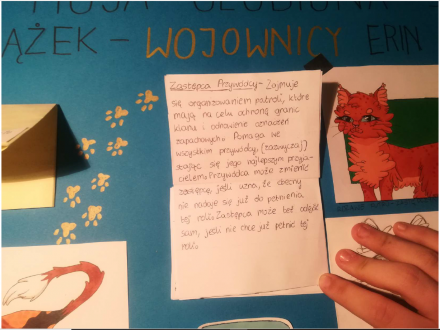 MOJA ULUBIONA
ĄŻEK - WOJOWNICY ERIN
Zastępca Przywódcy - Zajmuje
się organizowaniem patroli, które
mają na celu ochronę granic
klanu i odnowienie oznaczeń
zapachowych. Pomaga we
wszystkim przywódcy, (zazwyczaj)
stając się jego najlepszym przyja-
cielem. Przywódca może zmienić
zastępcę, jeśli uzna, że obecny
nie nadaje się już do pełnienia
tej roli. Zastępca może też odejść
sam, jeśli nie chce już pełnić tej
roli.